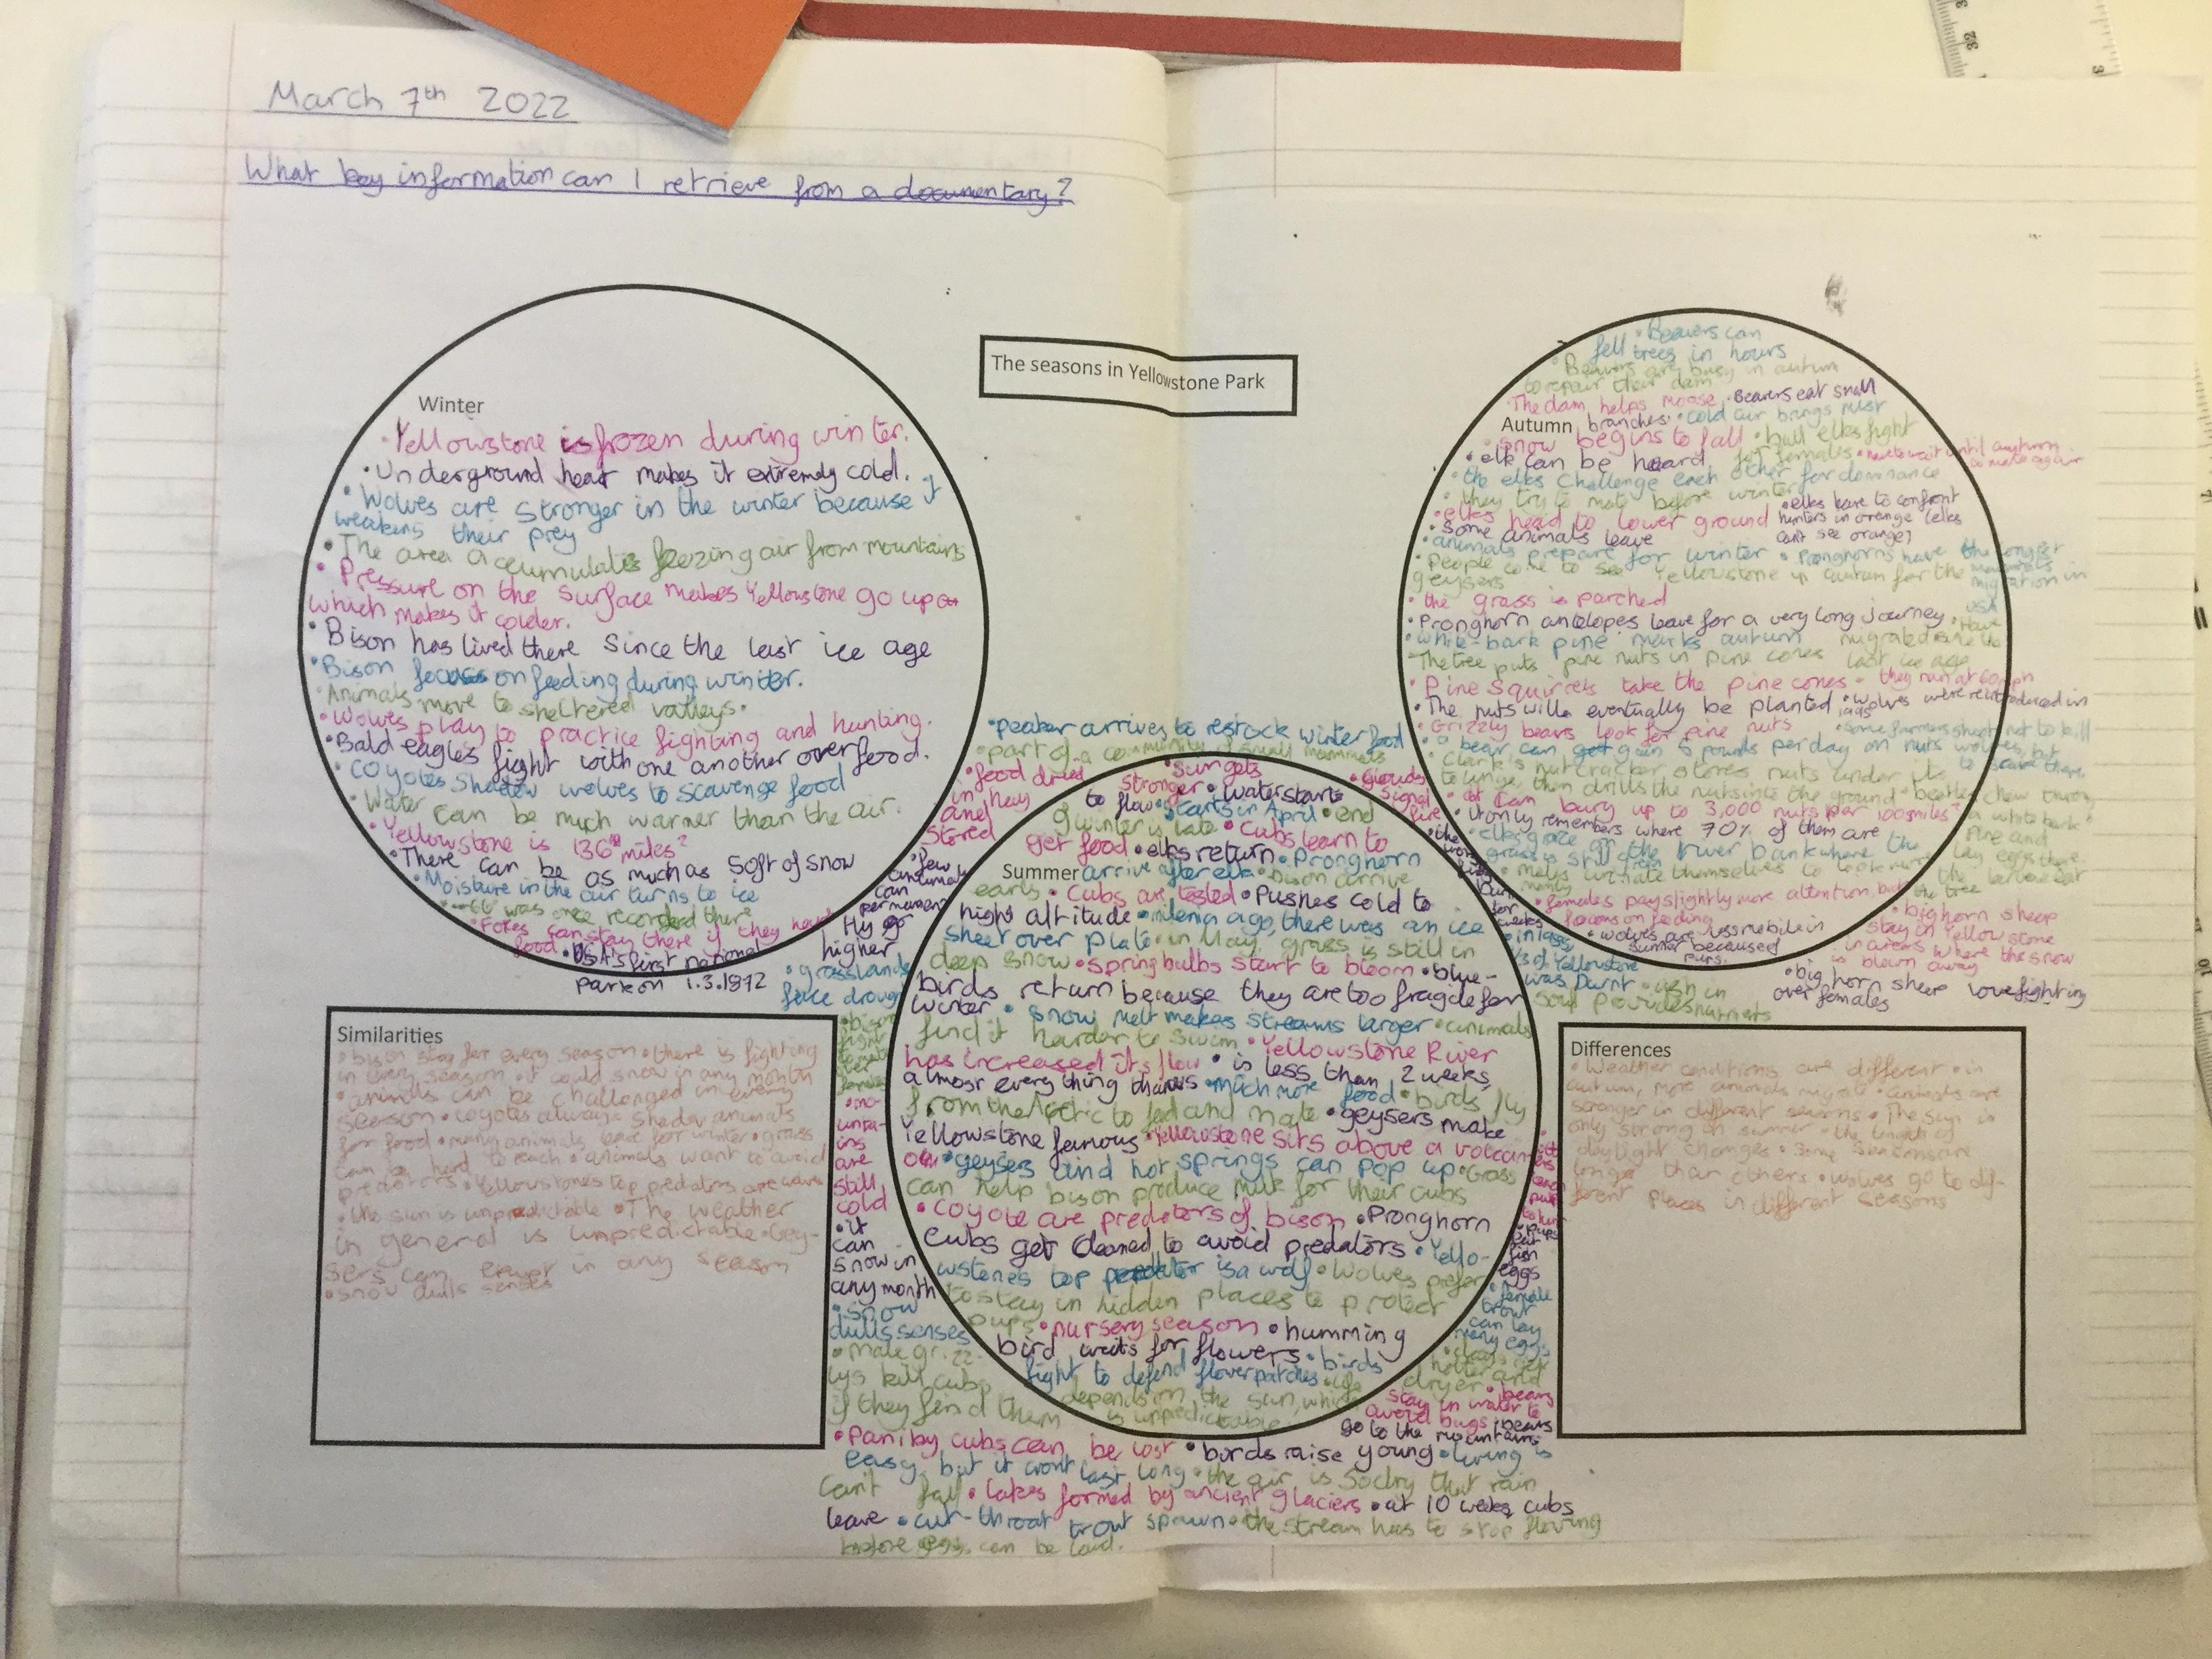 March 7th 2022
What key information can I retrieve from a documentary?
The seasons in Yellowstone Park
Winter
• Yellowstone is frozen during winter.
• Underground heat makes it extremely cold.
• Wolves are stronger in the winter because it
weakens their prey
• The area accumulates feezing air from mountains
• Pressure on the surface makes Yellowstone go up
which makes it colder.
• Bison has lived there since the last ice age
• Bison focuss on feeding during winter.
• Animals move to sheltered valleys.
• Wolves play to practice fighting and hunting.
• Bald eagles fight with one another over food.
• Coyotes Shadow wolves to scavenge food
• Water can be much warmer than the air.
• Yellowstone is 136 miles²
• There can be as much as 50ft of snow
• Moisture in the air turns to ice
was once recorded there
• Foxes can stay there if they have
food • USA's first national
park on 1.3.1872
Autumn
• Beavers can
fell trees in hours
• Beavers are busy in autum
to repair their dam
The dam helps moose • Beavers eat small
branches • cold air brings mist
• snow begins to fall • bull elks fight
for females • have to wait until autumn
to mate again
• elk can be heard
• the elks challenge each other for dominance
• they try to mate before winter
• elks have to confront
hunters in orange (elks
can't see orange)
• elks head to lower ground
• Some animals leave
• animals prepare for winter • Pronghorns have the longest
migration in
USA
• People come to see Yellowstone in autum for the
geysers
• the grass is parched
• Pronghorn antelopes leave for a very long journey • Have
migrated since the
last ice age
• white-bark pine marks autumn
The tree puts pine nuts in pine cones
• Pine squirrels take the pine cones • they run at 60mph
• The nuts will eventually be planted • wolves were reintroduced in
1995
• Grizzly bears look for pine nuts
• Some farmers shoot not to kill
wolves, but
to scare them
• a bear can get gain 5 pounds per day on nuts
• Clark's nutcracker stores nuts under its
tounge, then drills the nuts into the ground • beetles chew through
a white bark
pine and
lay eggs there.
• it can bury up to 3,000 nuts per 100 miles²
• it only remembers where 70% of them are
• elks graze on the river bank where the
grass is still green
• males urinate themselves to look more
manly
the tree
• females pay slightly more attention, but
focous on feeding
• wolves are less mobile in
summer because
pups.
• bighorn sheep
stay in Yellowstone
in areas where the snow
is blown away
• big horn sheep love fighting
over females
• peaker arrives to restock winter food
• part of a community of small mammals
• food dried
in hay
and
stored
• few
animals
can
permanently
Hy go
higher
• grasslands
face drough
• bison
fight
to mate
females
• mo-
unta-
ins
are
still
cold
• it
can
snow in
any month
• snow
dulls senses
• male grizz-
lys kill cubs
if they find them
Summer
• Sun gets
stronger • Water starts
to flow • starts in April • end
of winter is late • Cubs learn to
get food • elks return • Pronghorn
arrive after elk • Bison arrive
early • Cubs are tested • Pushes cold to
high altitude • milenia ago, there was an ice
sheet over plate • in May, grass is still in
deep snow • spring bulbs start to bloom • blue-
birds return because they are too fragile for
winter • snow melt makes streams larger • animals
find it harder to swim • Yellowstone River
has increased its flow • is less than 2 weeks,
almost everything thaws • much more food • birds fly
from the Arctic to feed and mate • geysers make
Yellowstone famous • Yellowstone sits above a volcan-
o • geysers and hot springs can pop up • Grass
can help bison produce milk for their cubs
• Coyote are predators of bison • Pronghorn
cubs get cleaned to avoid predators • Yello-
wstone's top predator is a wolf • Wolves prefer
to stay in hidden places to protect
pups • nursery season • humming
bird waits for flowers • birds
fight to defend flower patches • life
depends on the sun, which
is unpredictable
• clouds
signal
fire
for
weeks
• in 1988,
⅓ of Yellowstone
was burnt • ash in
soil provides nutrients
• pups
eat
fish
eggs
• female
trout
can lay
many eggs
• days get
hotter and
dryer
• bears
stay in water to
avoid bugs • bears
go to the mountains
• Paniby cubs can be lost • birds raise young • living is
easy, but it won't last long • the air is so dry that rain
can't fall • lakes formed by ancient glaciers • at 10 weeks, cubs
leave • cut-throat trout spawn • the stream has to stop flowing
before eggs can be laid.
Similarities
• bison stay for every season • there is fighting
in every season • it could snow in any month
• animals can be challenged in every
season • coyotes always shadow animals
for food • many animals leave for winter • grass
can be hard to reach • animals want to avoid
predators • Yellowstones top predators are wolves
• the sun is unpredictable • The weather
in general is unpredictable • Gey-
sers can erupt in any season
• snow dulls senses
Differences
• Weather conditions are different • in
autumn, more animals migrate • animals are
stronger in different seasons • The sun is
only strong in summer • the length of
daylight changes • Some seasons are
longer than others • wolves go to dif-
ferent places in different seasons